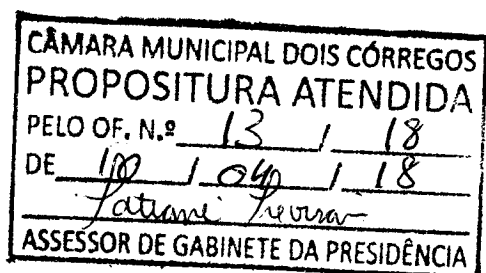 CÂMARA MUNICIPAL DOIS CÓRREGOS
PROPOSITURA ATENDIDA
PELO OF. N.º 13 / 18
DE / 04 / 18
Tatiane
ASSESSOR DE GABINETE DA PRESIDÊNCIA